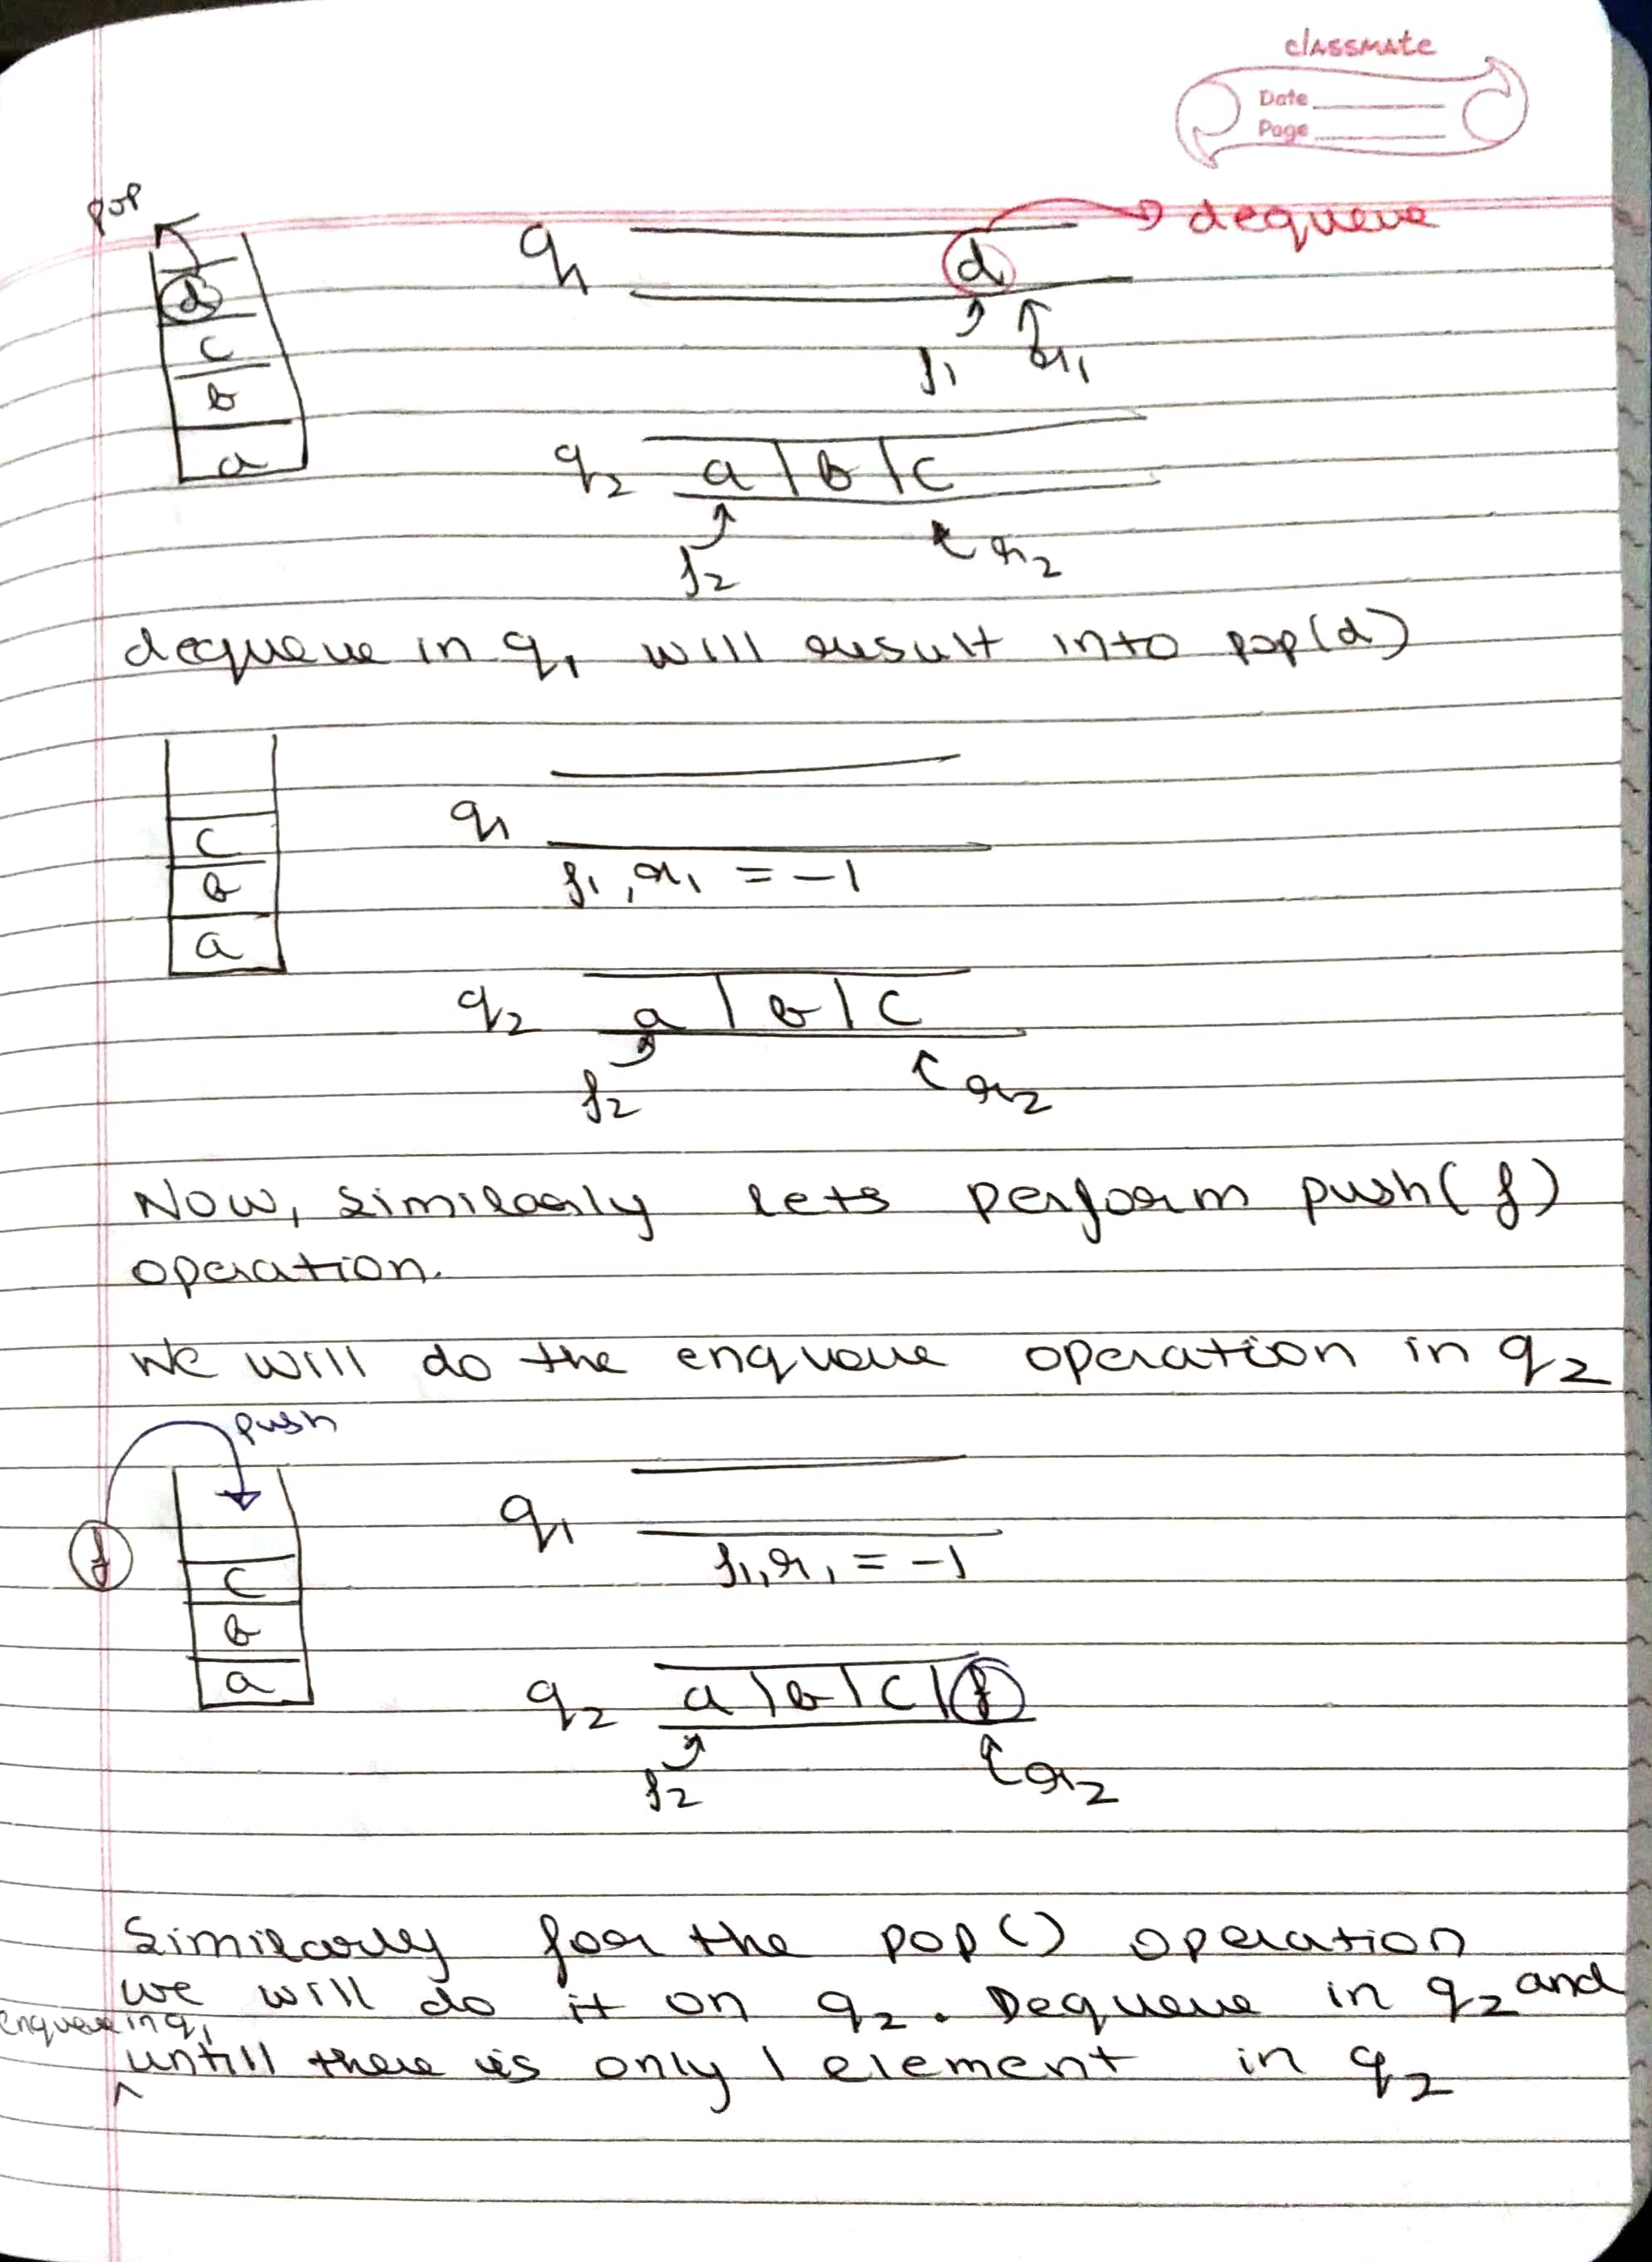 classmate
Date
Page
pop
d
c
b
a
q1
d
dequeue
f1 r1
q2 a | b | c
f2 r2
dequeue in q1 will result into pop(d)
c
b
a
q1
f1, r1 = -1
q2 a | b | c
f2 r2
Now, similarly lets perform push(f)
operation.
We will do the enqueue operation in q2
push
f
c
b
a
q1
f1, r1 = -1
q2 a | b | c | f
f2 r2
Similarly for the pop() operation
we will do it on q2. Dequeue in q2 and
enqueue in q1
untill there is only 1 element in q2